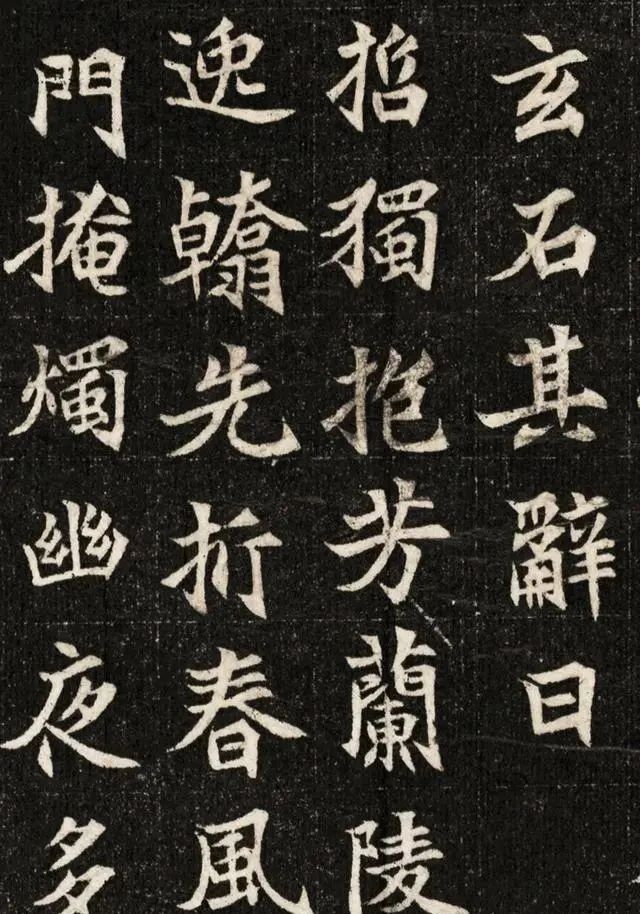 玄石其辭曰
哲獨抱芳蘭陵
逸翰先折春風
門掩燭幽夜多